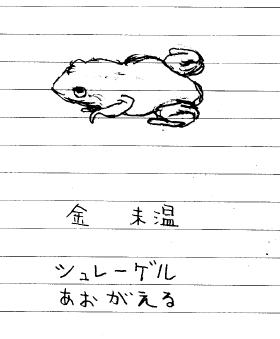 金 未温
シュレーゲル
あおがえる